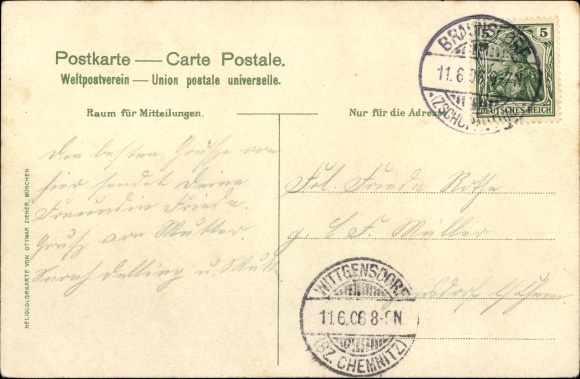 Postkarte — Carte Postale.
Weltpostverein — Union postale universelle.
Raum für Mitteilungen.
Nur für die Adresse.
BRAUNSDORF
11.6.06 8-9N
(ZSCHOPAUTHAL)
5 5
DEUTSCHES REICH
Die besten Grüsse von
hier sendet Deine
Freundin Frieda.
Gruß von Mutter.
u. Mutt
Frl. Frieda Rothe
Müller
WITTGENSDORF
11.6.06 8-9N
(BZ. CHEMNITZ)
HELIOCOLORKARTE VON OTTMAR ZIEHER, MÜNCHEN